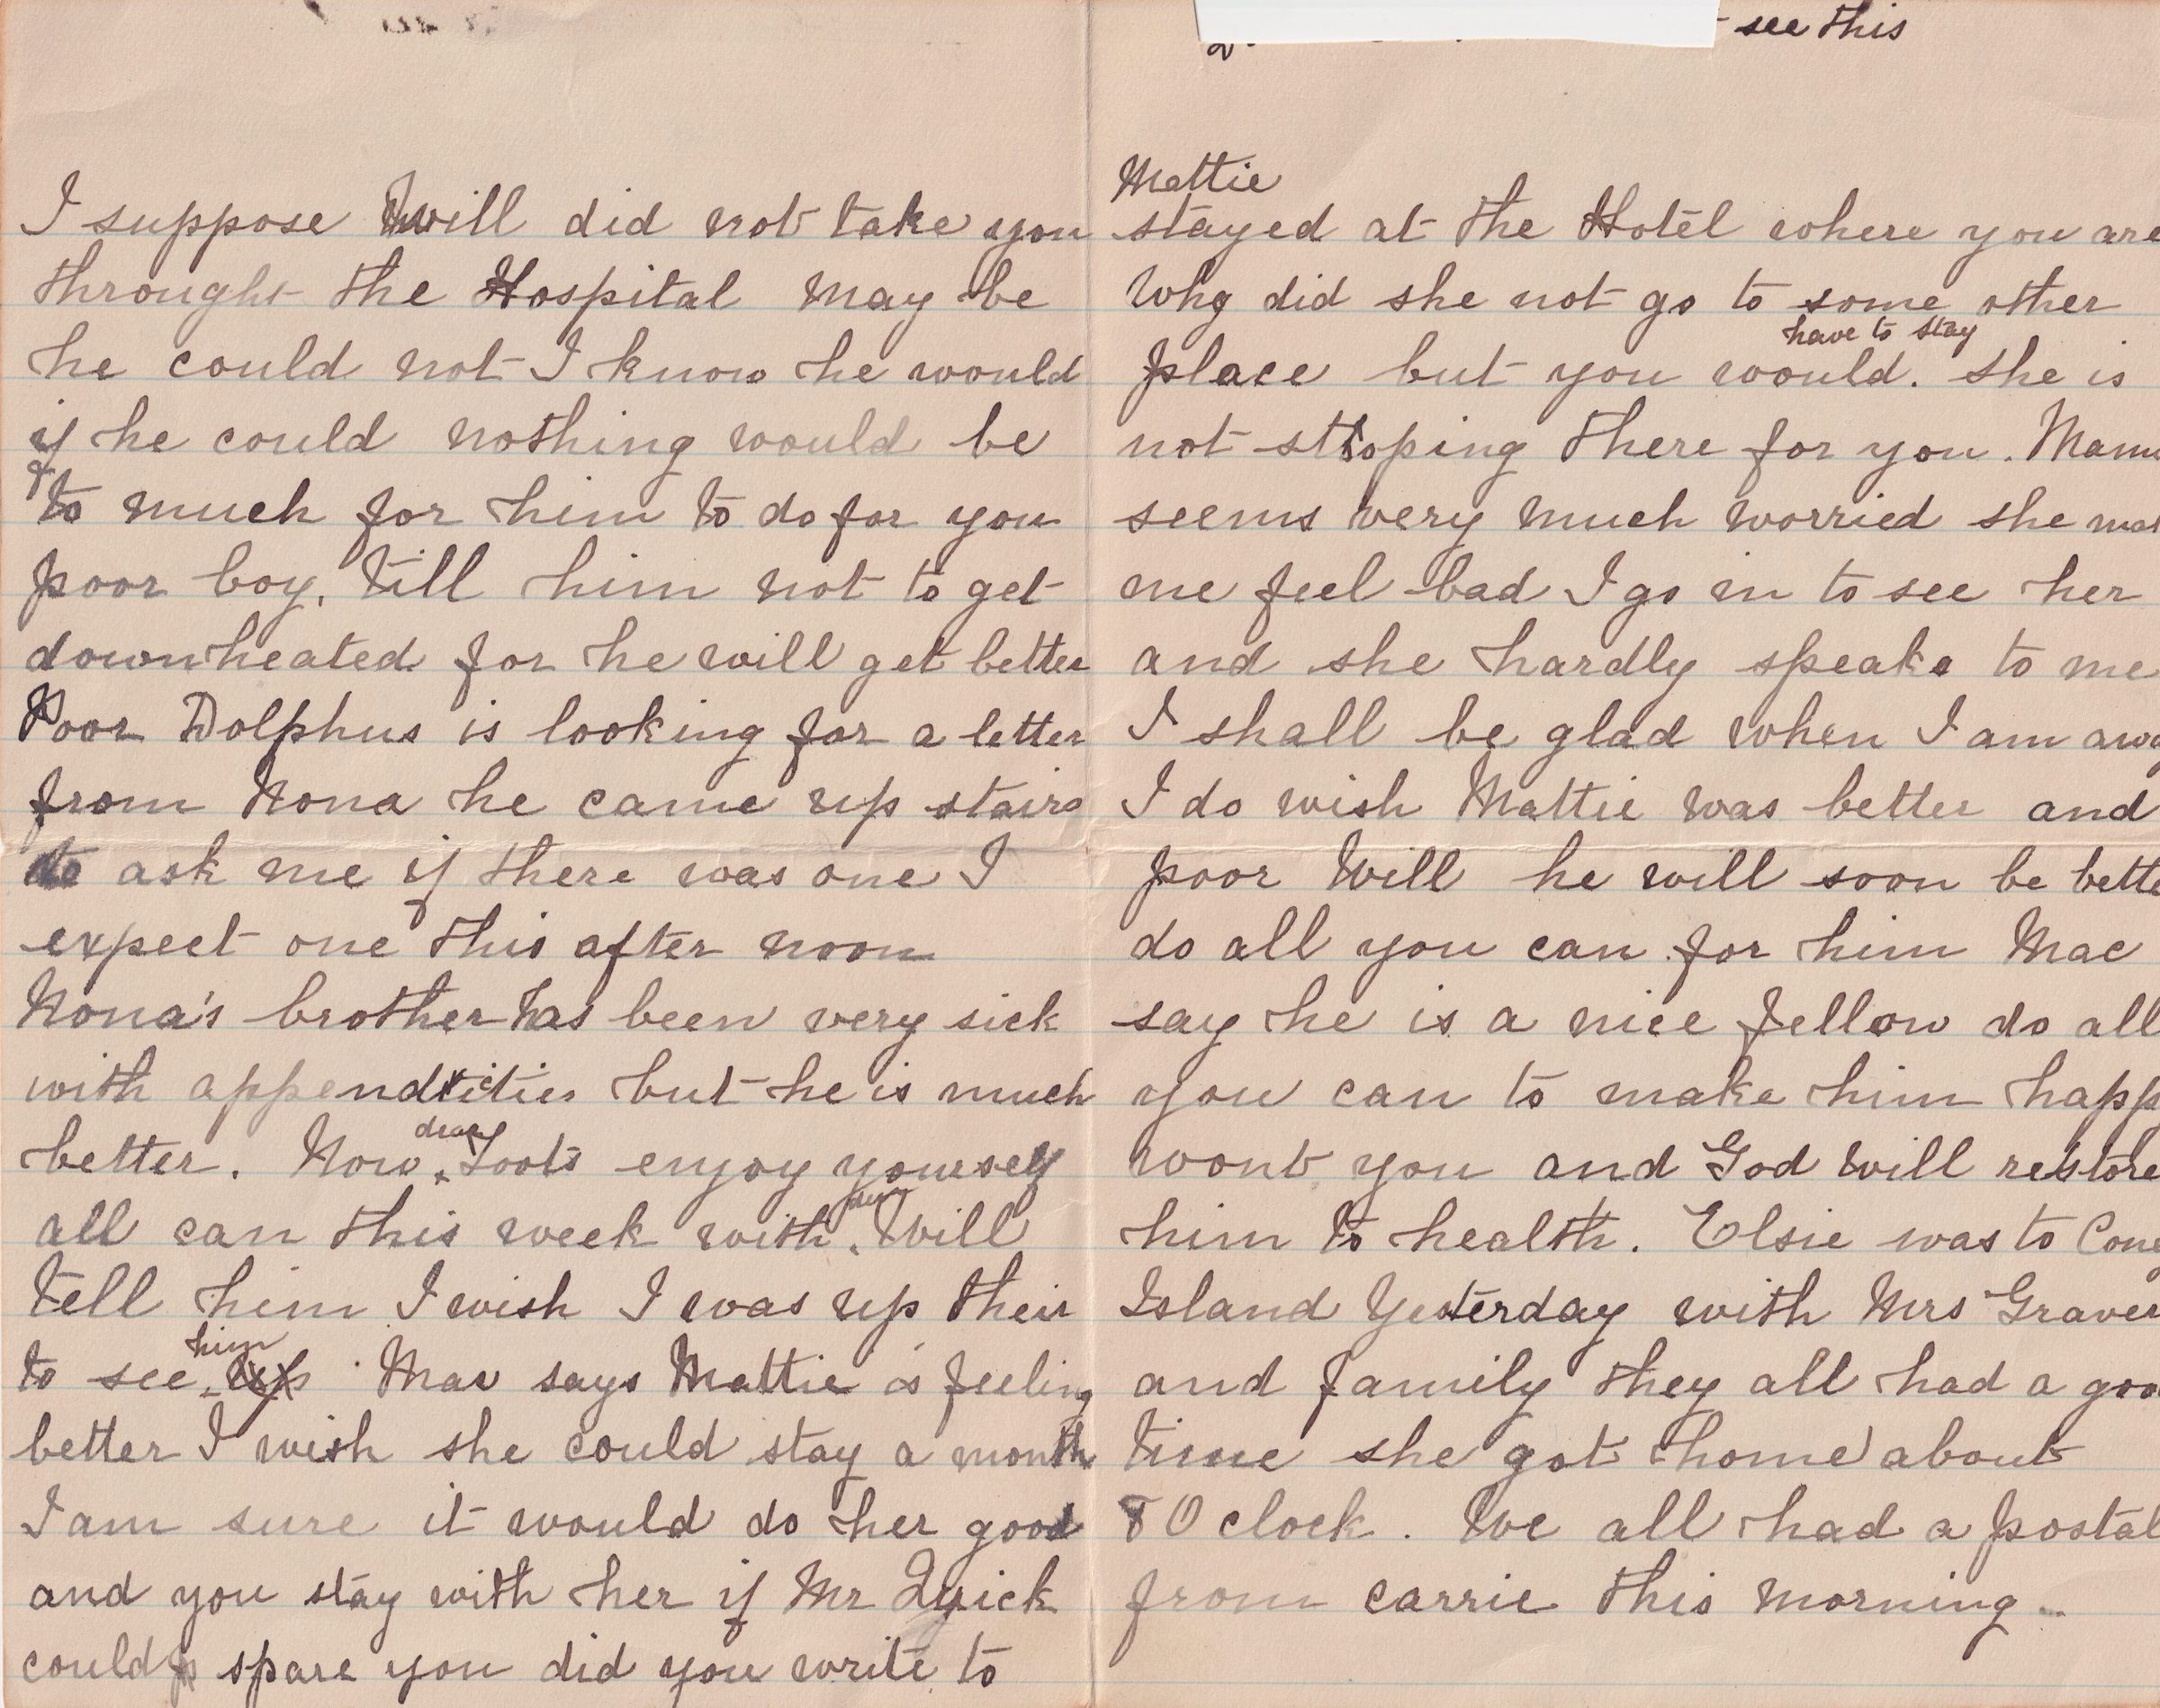 I suppose Will did not take you
throught the Hospital may be
he could not I know he would
if he could nothing would be
to much for him to do for you
poor boy. till him not to get
downheated for he will get better
Poor Dolphus is looking for a letter
from Nona he came up stairs
to ask me if there was one I
expect one this after noon
Nona's brother has been very sick
with appendicities but he is much
better. Now dear Toots enjoy yourself
all can this week with dear Will
tell him I wish I was up their
to see him Mac says Mattie is feeling
better I wish she could stay a month
I am sure it would do her good
and you stay with her if Mr Quick
could spare you did you write to
see this
Mattie
stayed at the Hotel where you are
Why did she not go to some other
have to stay
place but you would. She is
not stoping there for you. Mam
seems very much worried she ma
me feel bad I go in to see her
and she hardly speaks to me
I shall be glad when I am awa
I do wish Mattie was better and
poor Will he will soon be bette
do all you can for him Mac
say he is a nice fellow do all
you can to make him happ
wont you and God will restore
him to health. Elsie was to Cone
Island Yesterday with Mrs Graves
and family they all had a goo
time she got home about
8 O clock. We all had a postal
from carrie this morning